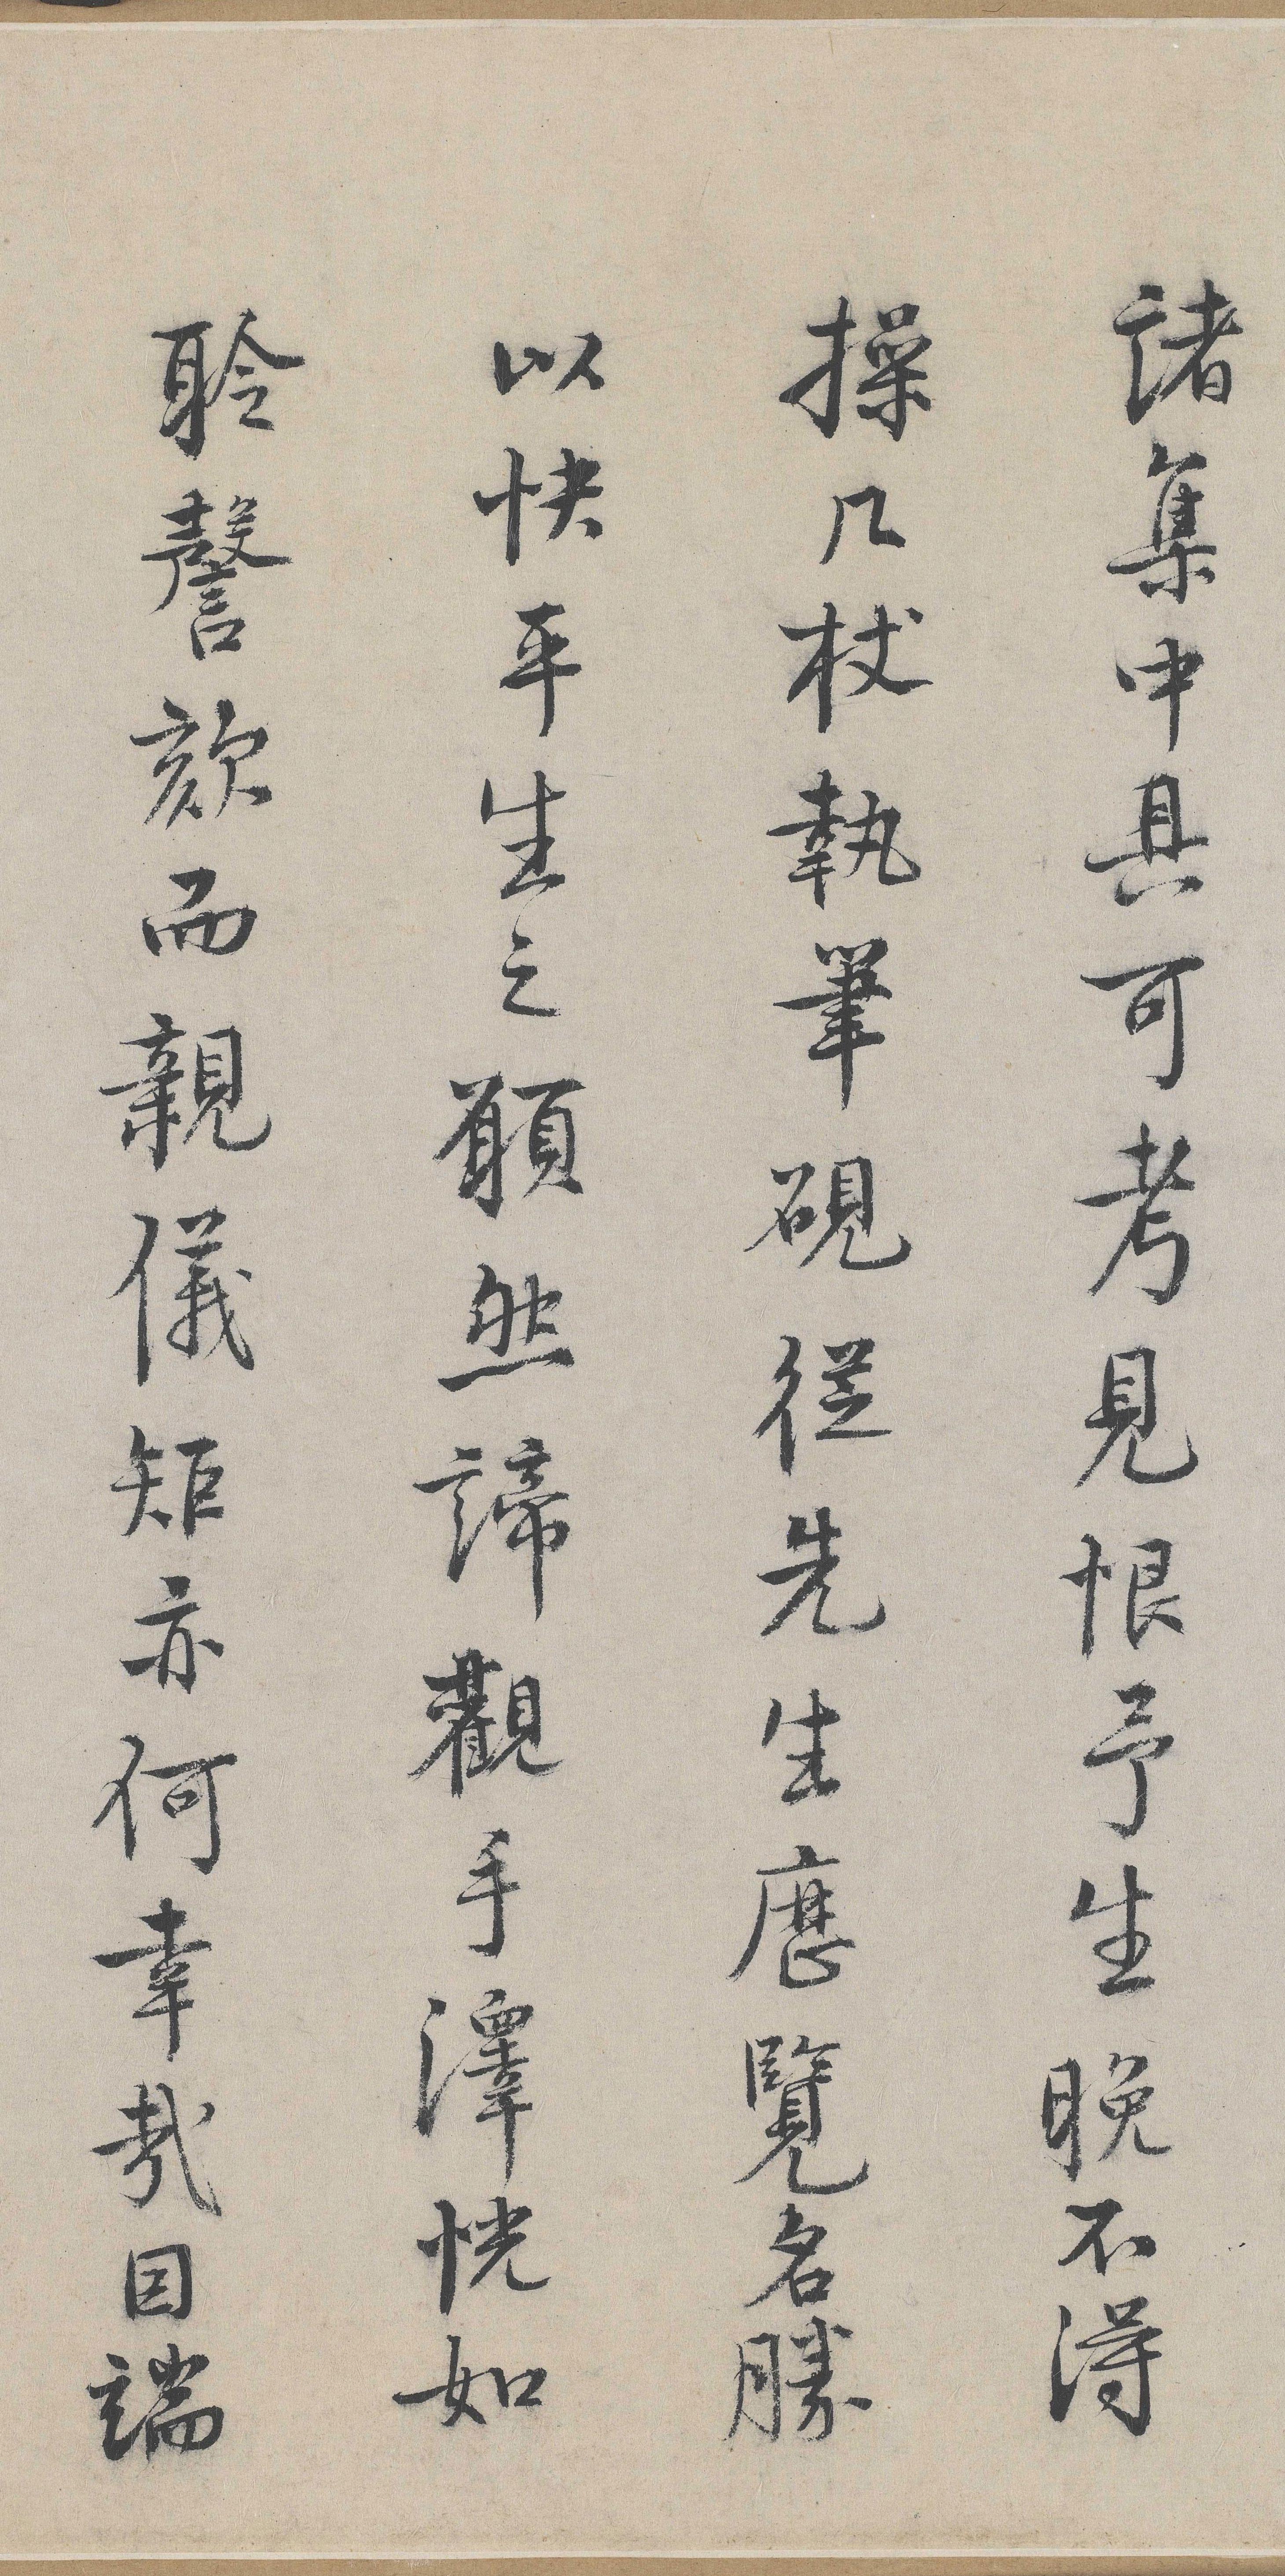 諸集中具可考見恨予生晚不得
操几杖執筆硯從先生歷覽名勝
以快平生之願然諦觀手澤恍如
聆謦欬而親儀矩亦何幸哉因端